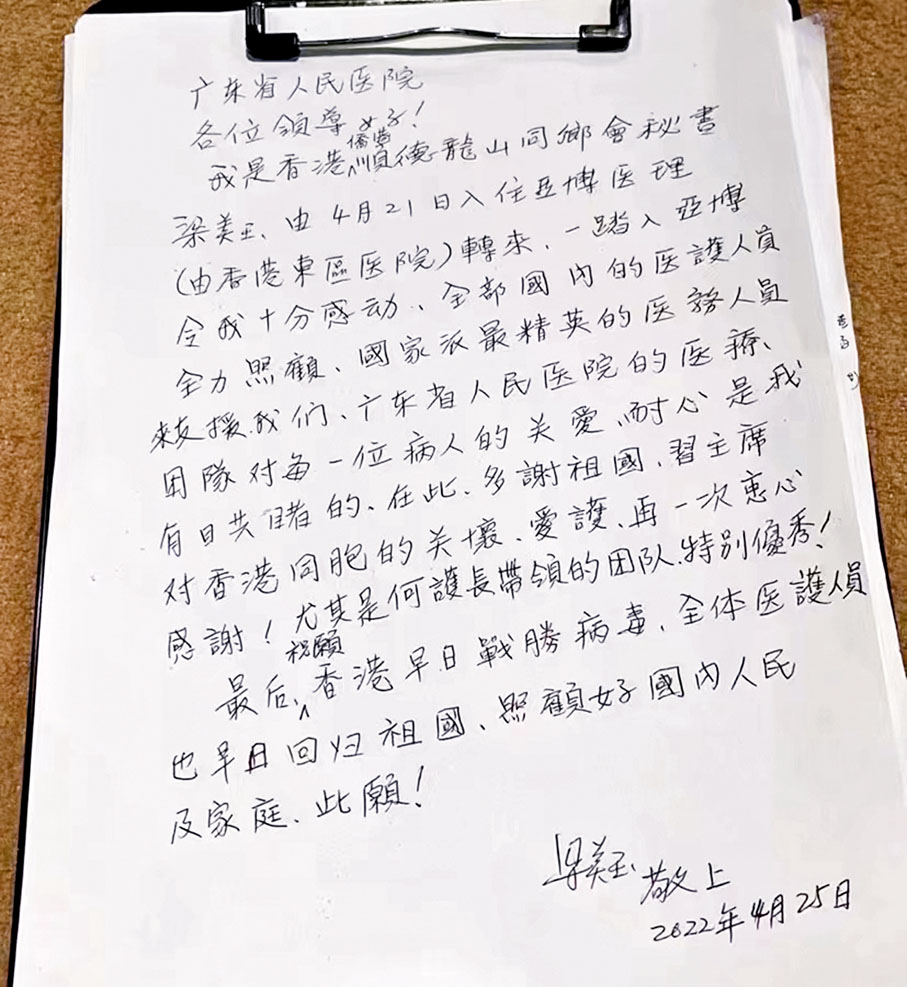 广东省人民医院
各位領導好!
我是香港僑港順德龍山同鄉會秘書
梁美玉、由4月21日入住亞博医理
(由香港東區医院)轉來、一踏入亞博
令我十分感动、全部國內的医護人員
全力照顧、國家派最精英的医務人員
來支援我们、广东省人民医院的医療、
团隊对每一位病人的关爱、耐心是我
有目共睹的、在此、多謝祖國、習主席
对香港同胞的关壞、爱護、再一次衷心
感謝!尤其是何護長帶領的团队、特别優秀!
最后、祝願香港早日戰勝病毒、全体医護人員
也早日回归祖國、照顧好國内人民
及家庭、此願!
梁美玉 敬上
2022年4月25日